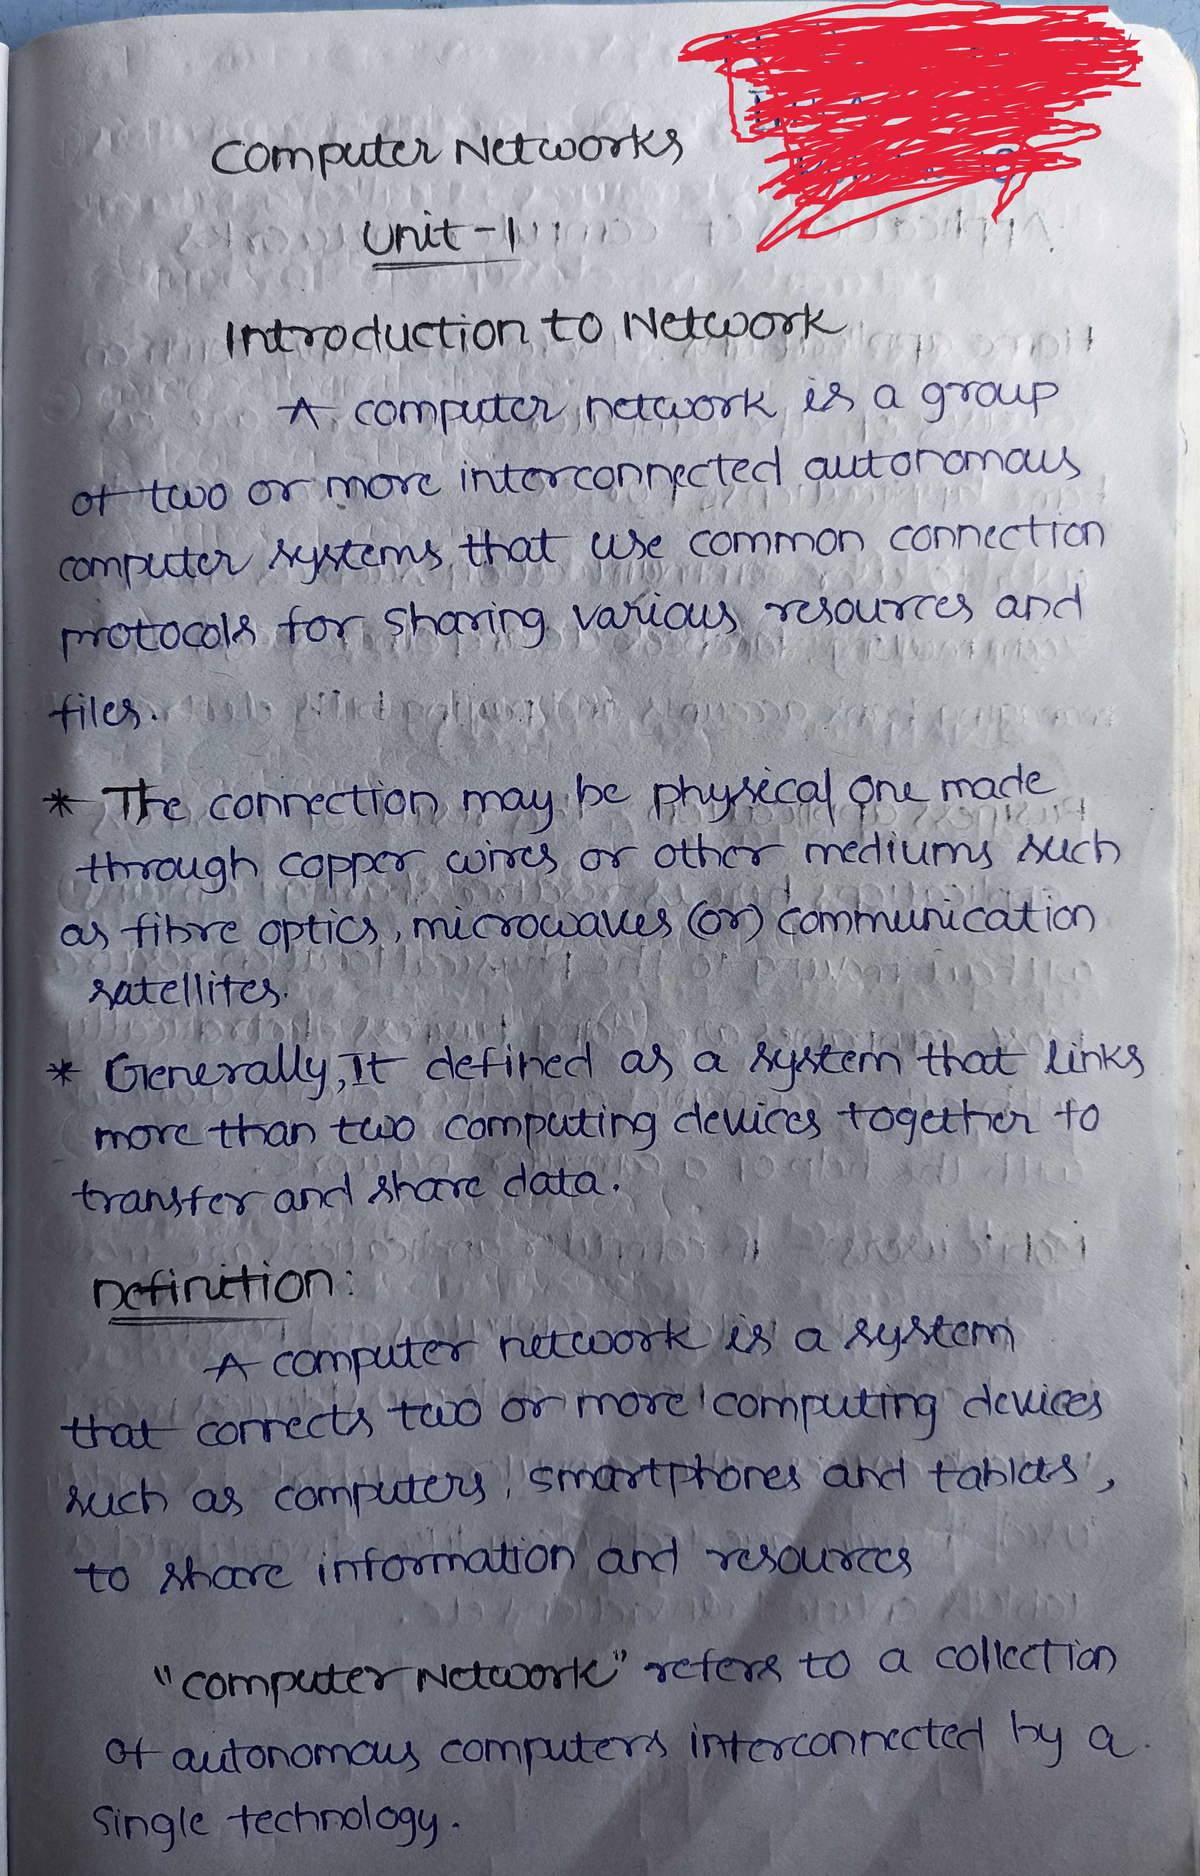 Computer Networks
Unit-1
Introduction to Network
A computer network is a group
of two or more interconnected autonomous
computer systems that use common connection
protocols for sharing various resources and
files.
* The connection may be physical one made
through copper wires or other mediums such
as fibre optics, microwaves (or) communication
satellites.
* Generally, It defined as a system that links
more than two computing devices together to
transfer and share data.
Definition:
A computer network is a system
that connects two or more computing devices
such as computers, smartphones and tablets,
to share information and resources
"Computer Network" refers to a collection
of autonomous computers interconnected by a
single technology.